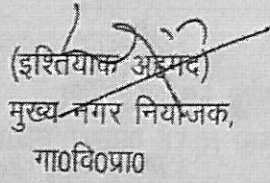 (इश्तियाक अहमद)
मुख्य नगर नियोजक,
गा0वि0प्रा0